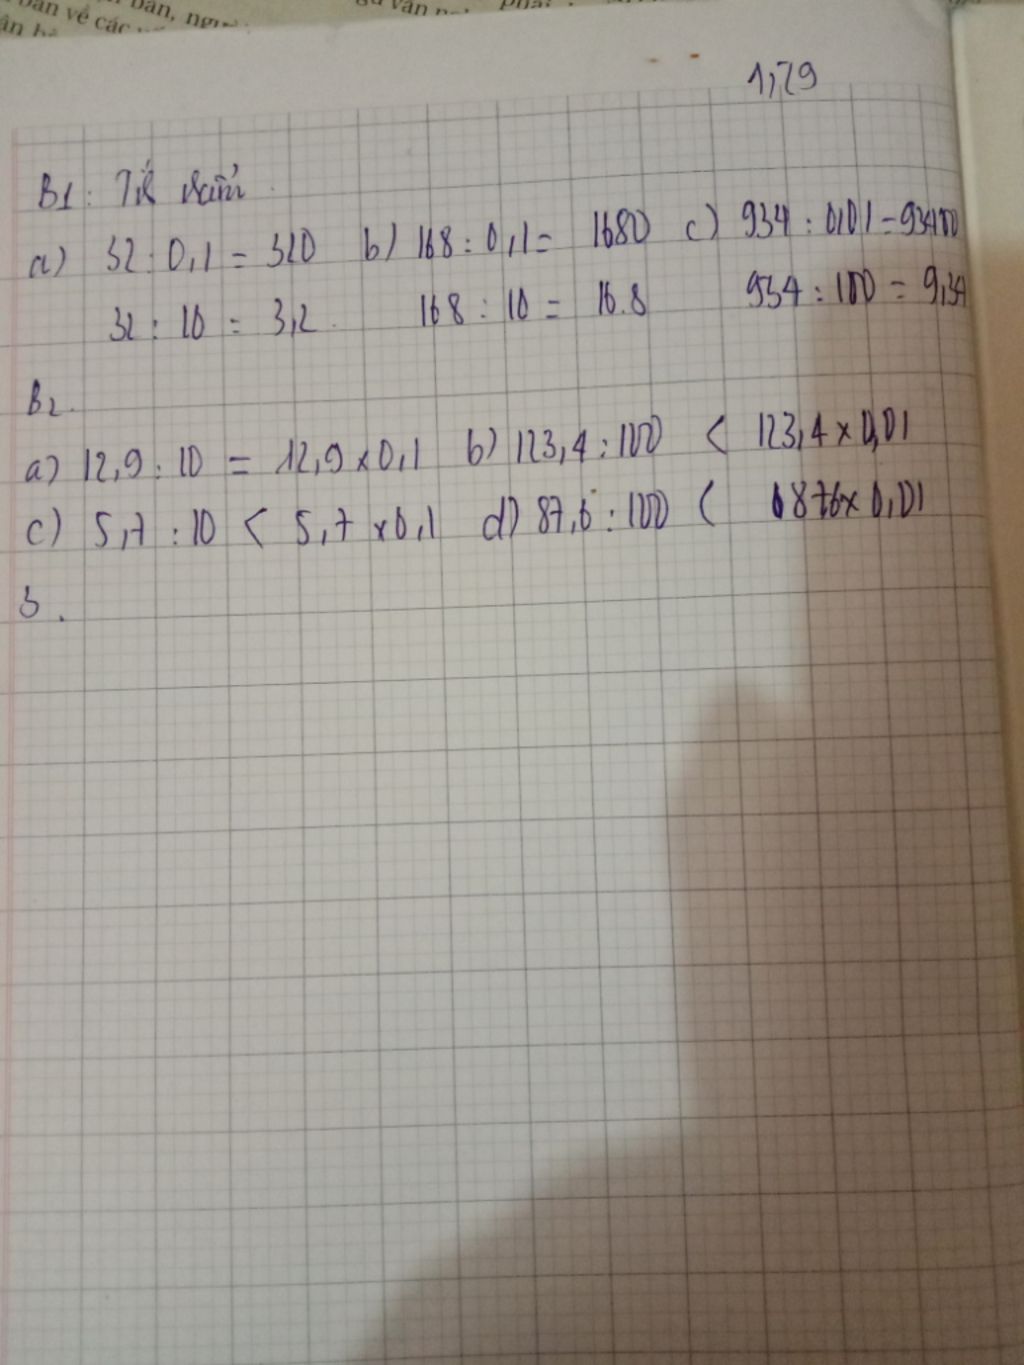 bản về các
văn
1,79
B1:
a) 32 : 0,1 = 320 b) 168 : 0,1 = 1680 c) 934 : 0,01 = 93400
32 : 10 = 3,2 168 : 10 = 16.8 934 : 100 = 9,34
B2.
a) 12,9 : 10 = 12,9 x 0,1 b) 123,4 : 100 < 123,4 x 0,01
c) 5,7 : 10 < 5,7 x 0,1 d) 87,6 : 100 < 876 x 0,01
3.